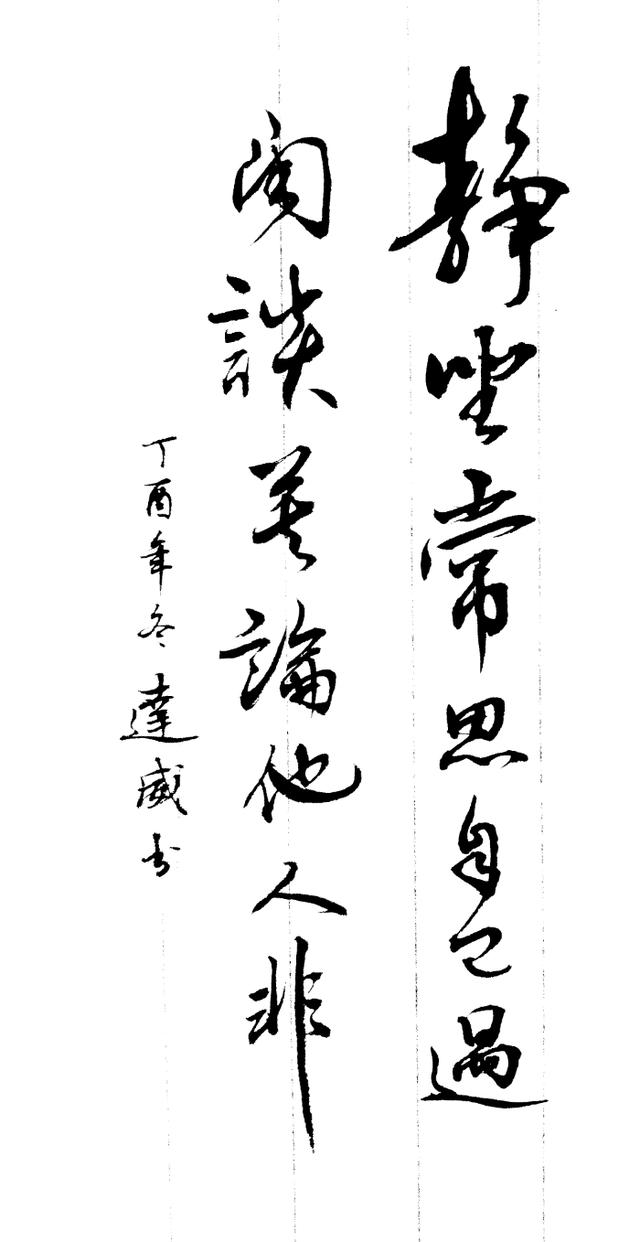 靜坐常思自己過
閑談莫論他人非
丁酉年冬 達威书